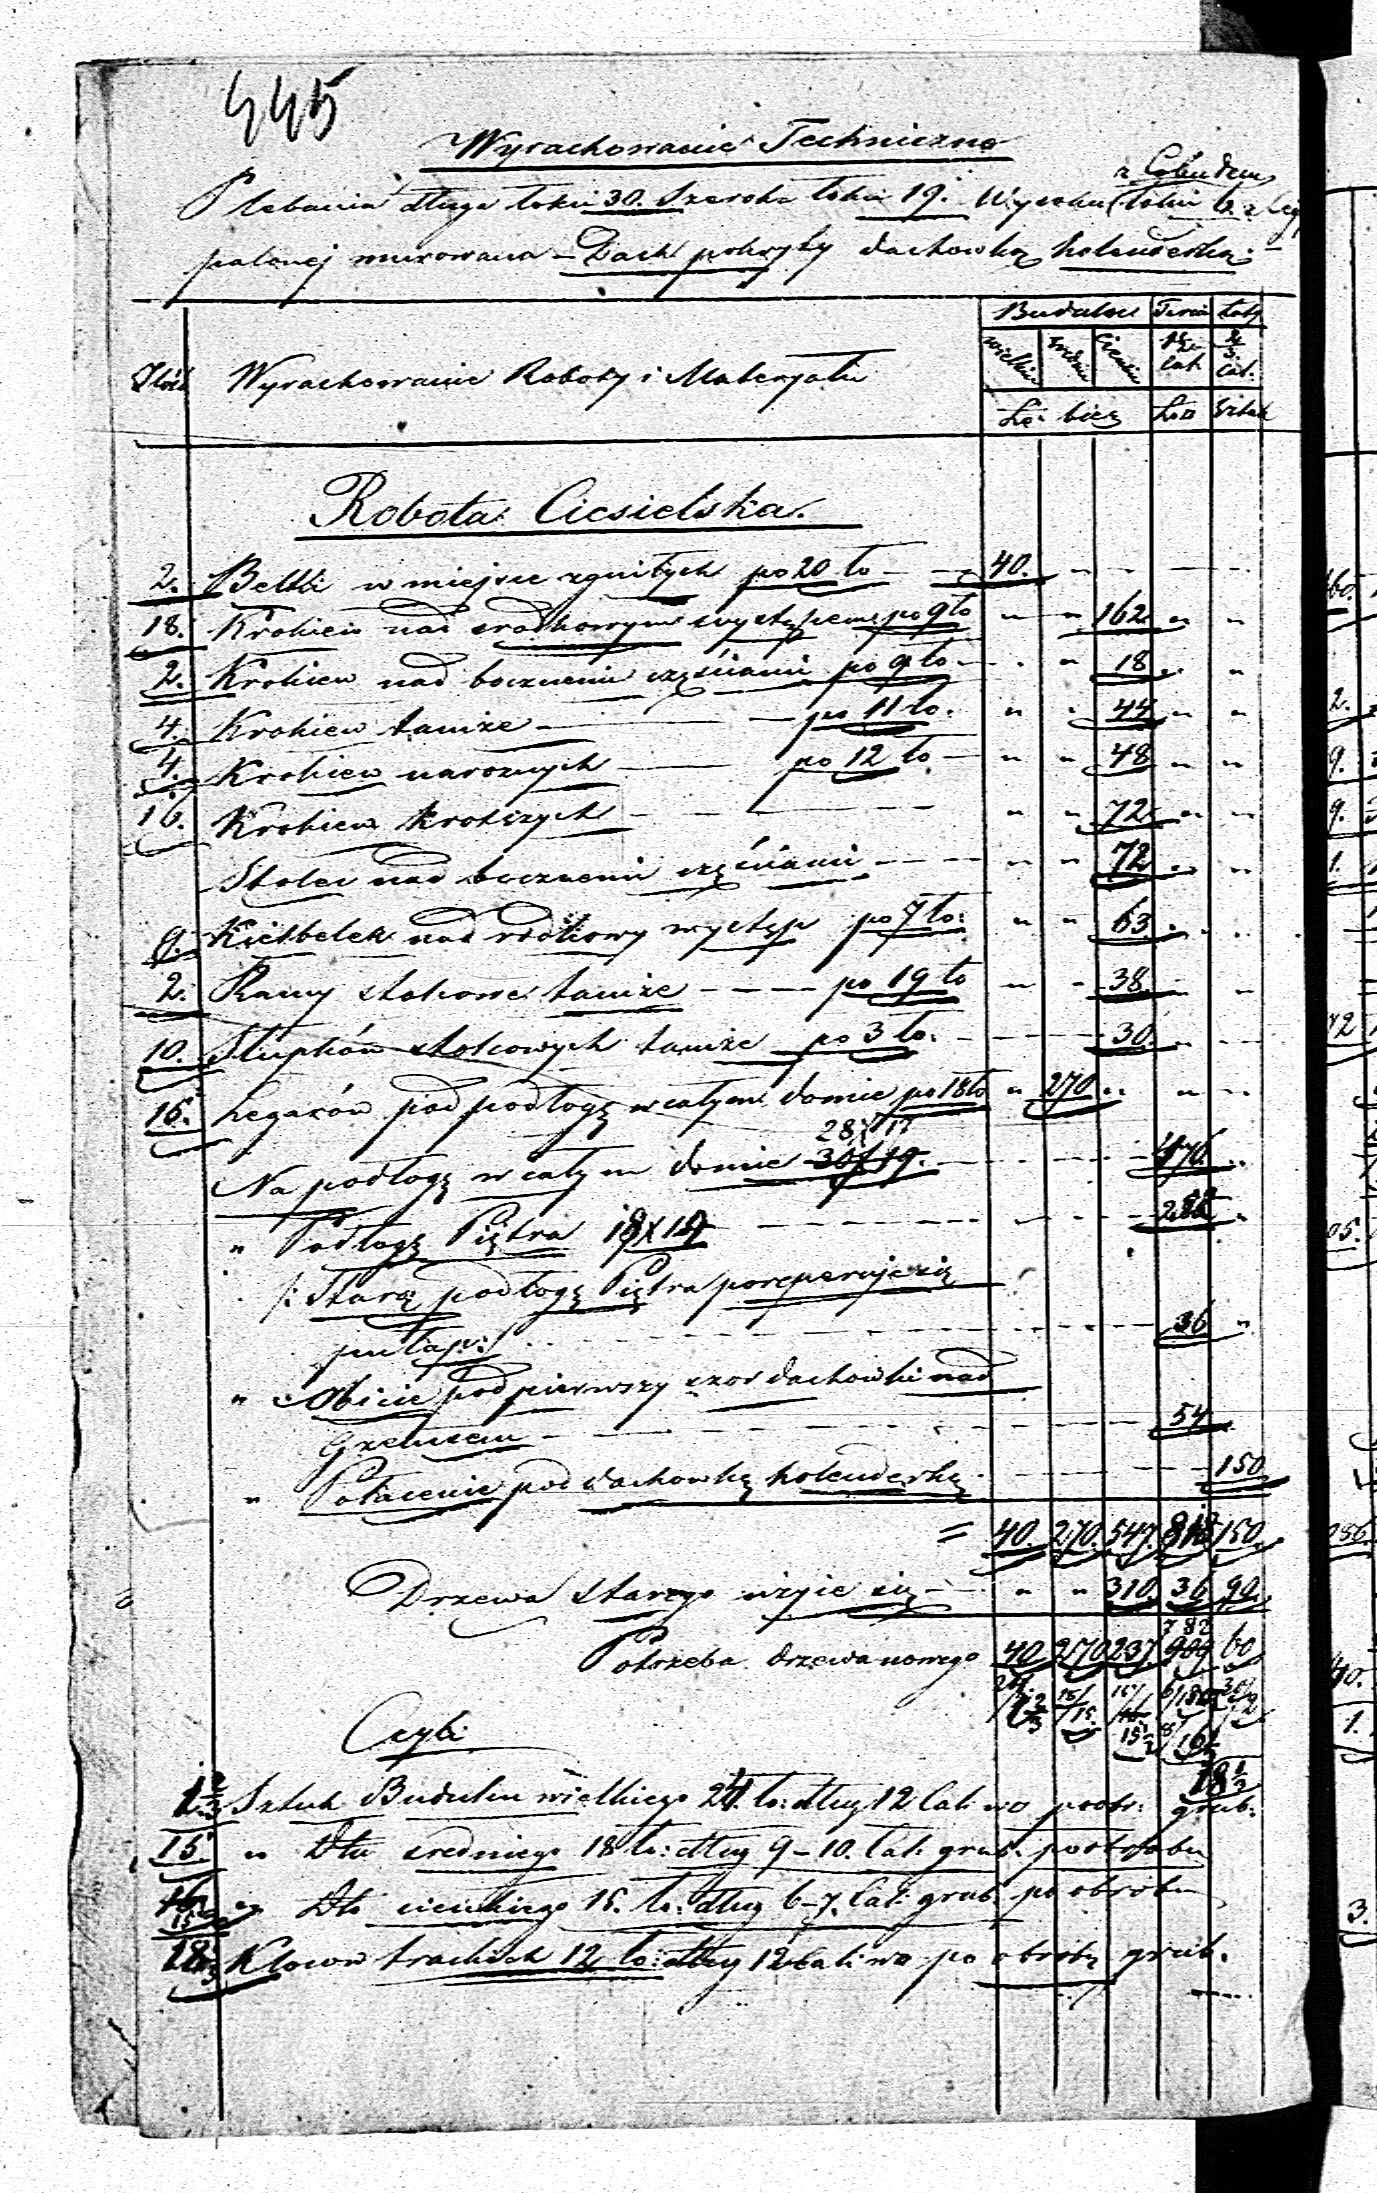 445
Wyrachowanie Techniczne
Plebania długa łokci 30. Szeroka łokci 19. Wysoka łokci 6. z Ceg
palonej murowana – Dach pokryty dachówką holenderką. –
Ilość Wyrachowanie Roboty i Materyału
Budulec Tarcic Łaty
wielkie średnie cienkie cal. cal.
Ło: bież Ło□ Sztuk
Robota Ciesielska.
2. Belki w miejsce zgniłych po 20 ło – – 40. – – – –
18. Krokiew nad środkowym występem po 9 ło " " 162 " "
2. Krokiew nad bocznemi częściami po 9 ło – " " 18 " "
4. Krokiew tamże – po 11 ło. " " 44 " "
4. Krokiew narożnych – po 12 ło – " " 48 " "
16. Krokiew krótszych – – – " " 72 " "
Stolec nad bocznemi częściami – – – " " 72 " "
9. nad występ po 7 ło: " " 63 " "
2. Ramy stolcowe tamże – – – – po 19 ło " " 38 – "
10. Słupków stolcowych tamże po 3 ło: – – – 30. – –
15. Legarów pod podłogę w całym domie po 18 ło " 270 " " "
28 X 17
Na podłogę w całym domie 30 X 19. – – – – 476 "
" Podłogę Piętra 18 X – – – – "
/: Starą podłogę Piętra poreperuje się
pułap :/ – – – – 36 "
" Obicie pod pierwszy szor dachówki nad
Gzemsem – – – – 54
" Połacenie pod dachówkę holenderkę – – – – 150
= 40. 270. 547. 818 150.
Drzewa starego użyje się – – " " 310. 36 90.
782
Potrzeba drzewa nowego 40 270 237. 60
Czyli
18 1/2
1 2/3 Sztuk Budulcu wielkiego 24. ło: dług 12 cali wo poobr: grub:
15. " Dto średniego 18 ło: dług 9 – 10. cali grub. po obrobu
" Dto cienkiego 15. ło: dług 6 – 7. cali grub. po obrobu
Kloców trackich 12 ło: dług 12 cali wo po obróbę grub.